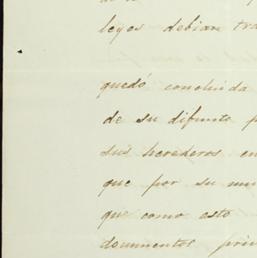 leyes debian tra
quedó concluida
de su difunto p
sus herederos en
que por su mu
que como esto
documentos prin